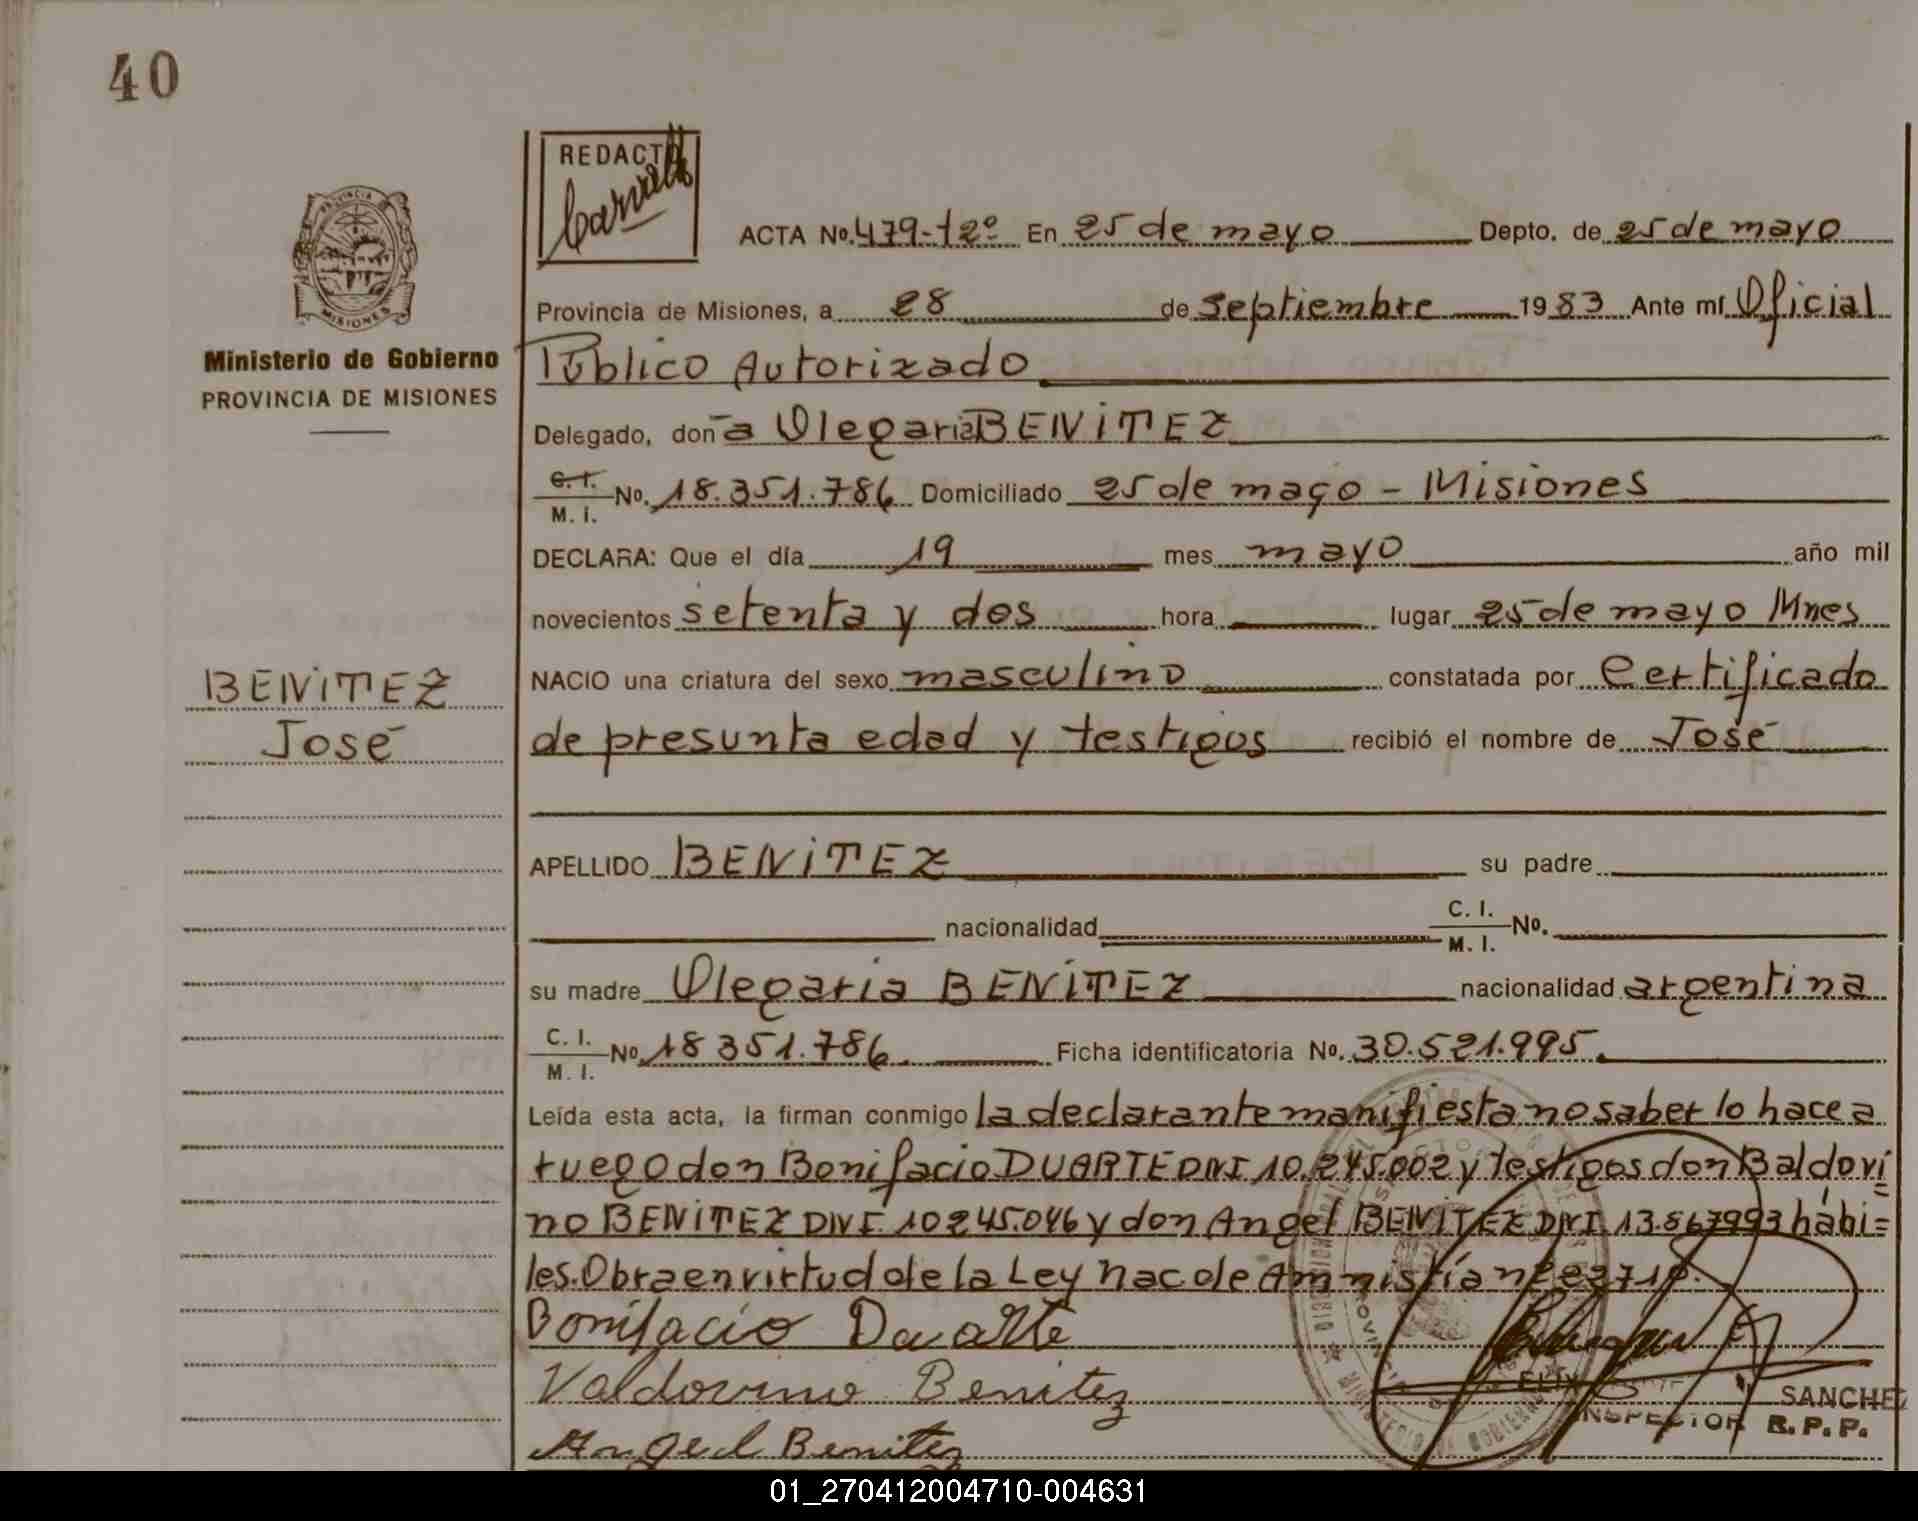 40
REDACTÓ
Carvallo
PROVINCIA
MISIONES
Ministerio de Gobierno
PROVINCIA DE MISIONES
ACTA No. 479-t2º En 25 de mayo Depto. de 25 de mayo
Provincia de Misiones, a 28 de septiembre 1983 Ante mí Oficial
Público Autorizado
Delegado, doña Olegaria BENiTEZ
C. I. M. I. No. 18.351.786 Domiciliado 25 de mayo - Misiones
DECLARA: Que el día 19 mes mayo año mil
novecientos setenta y dos hora lugar 25 de mayo Mnes
BENiTEZ
José
NACIO una criatura del sexo masculino constatada por Certificado
de presunta edad y testigos recibió el nombre de José
APELLIDO BENiTEZ su padre
nacionalidad C. I. M. I. No.
su madre Olegaria BENiTEZ nacionalidad argentina
C. I. M. I. No. 18 351.786. Ficha identificatoria No. 30.521.995.
Leída esta acta, la firman conmigo la declarante manifiesta no saber lo hace a
ruego don Bonifacio DUARTE DNI 10.245.002 y testigos don Baldovi=
no BENiTEZ DNI. 10245.046 y don Angel BENiTEZ DNI 13.867993 hábi=
les. Obra en virtud de la Ley Nac de Ammistía nº 22710.
Bonifacio Duarte
Valdovino Benitez
Angel Benitez
SANCHEZ
INSPECTOR R.P.P.
01_270412004710-004631